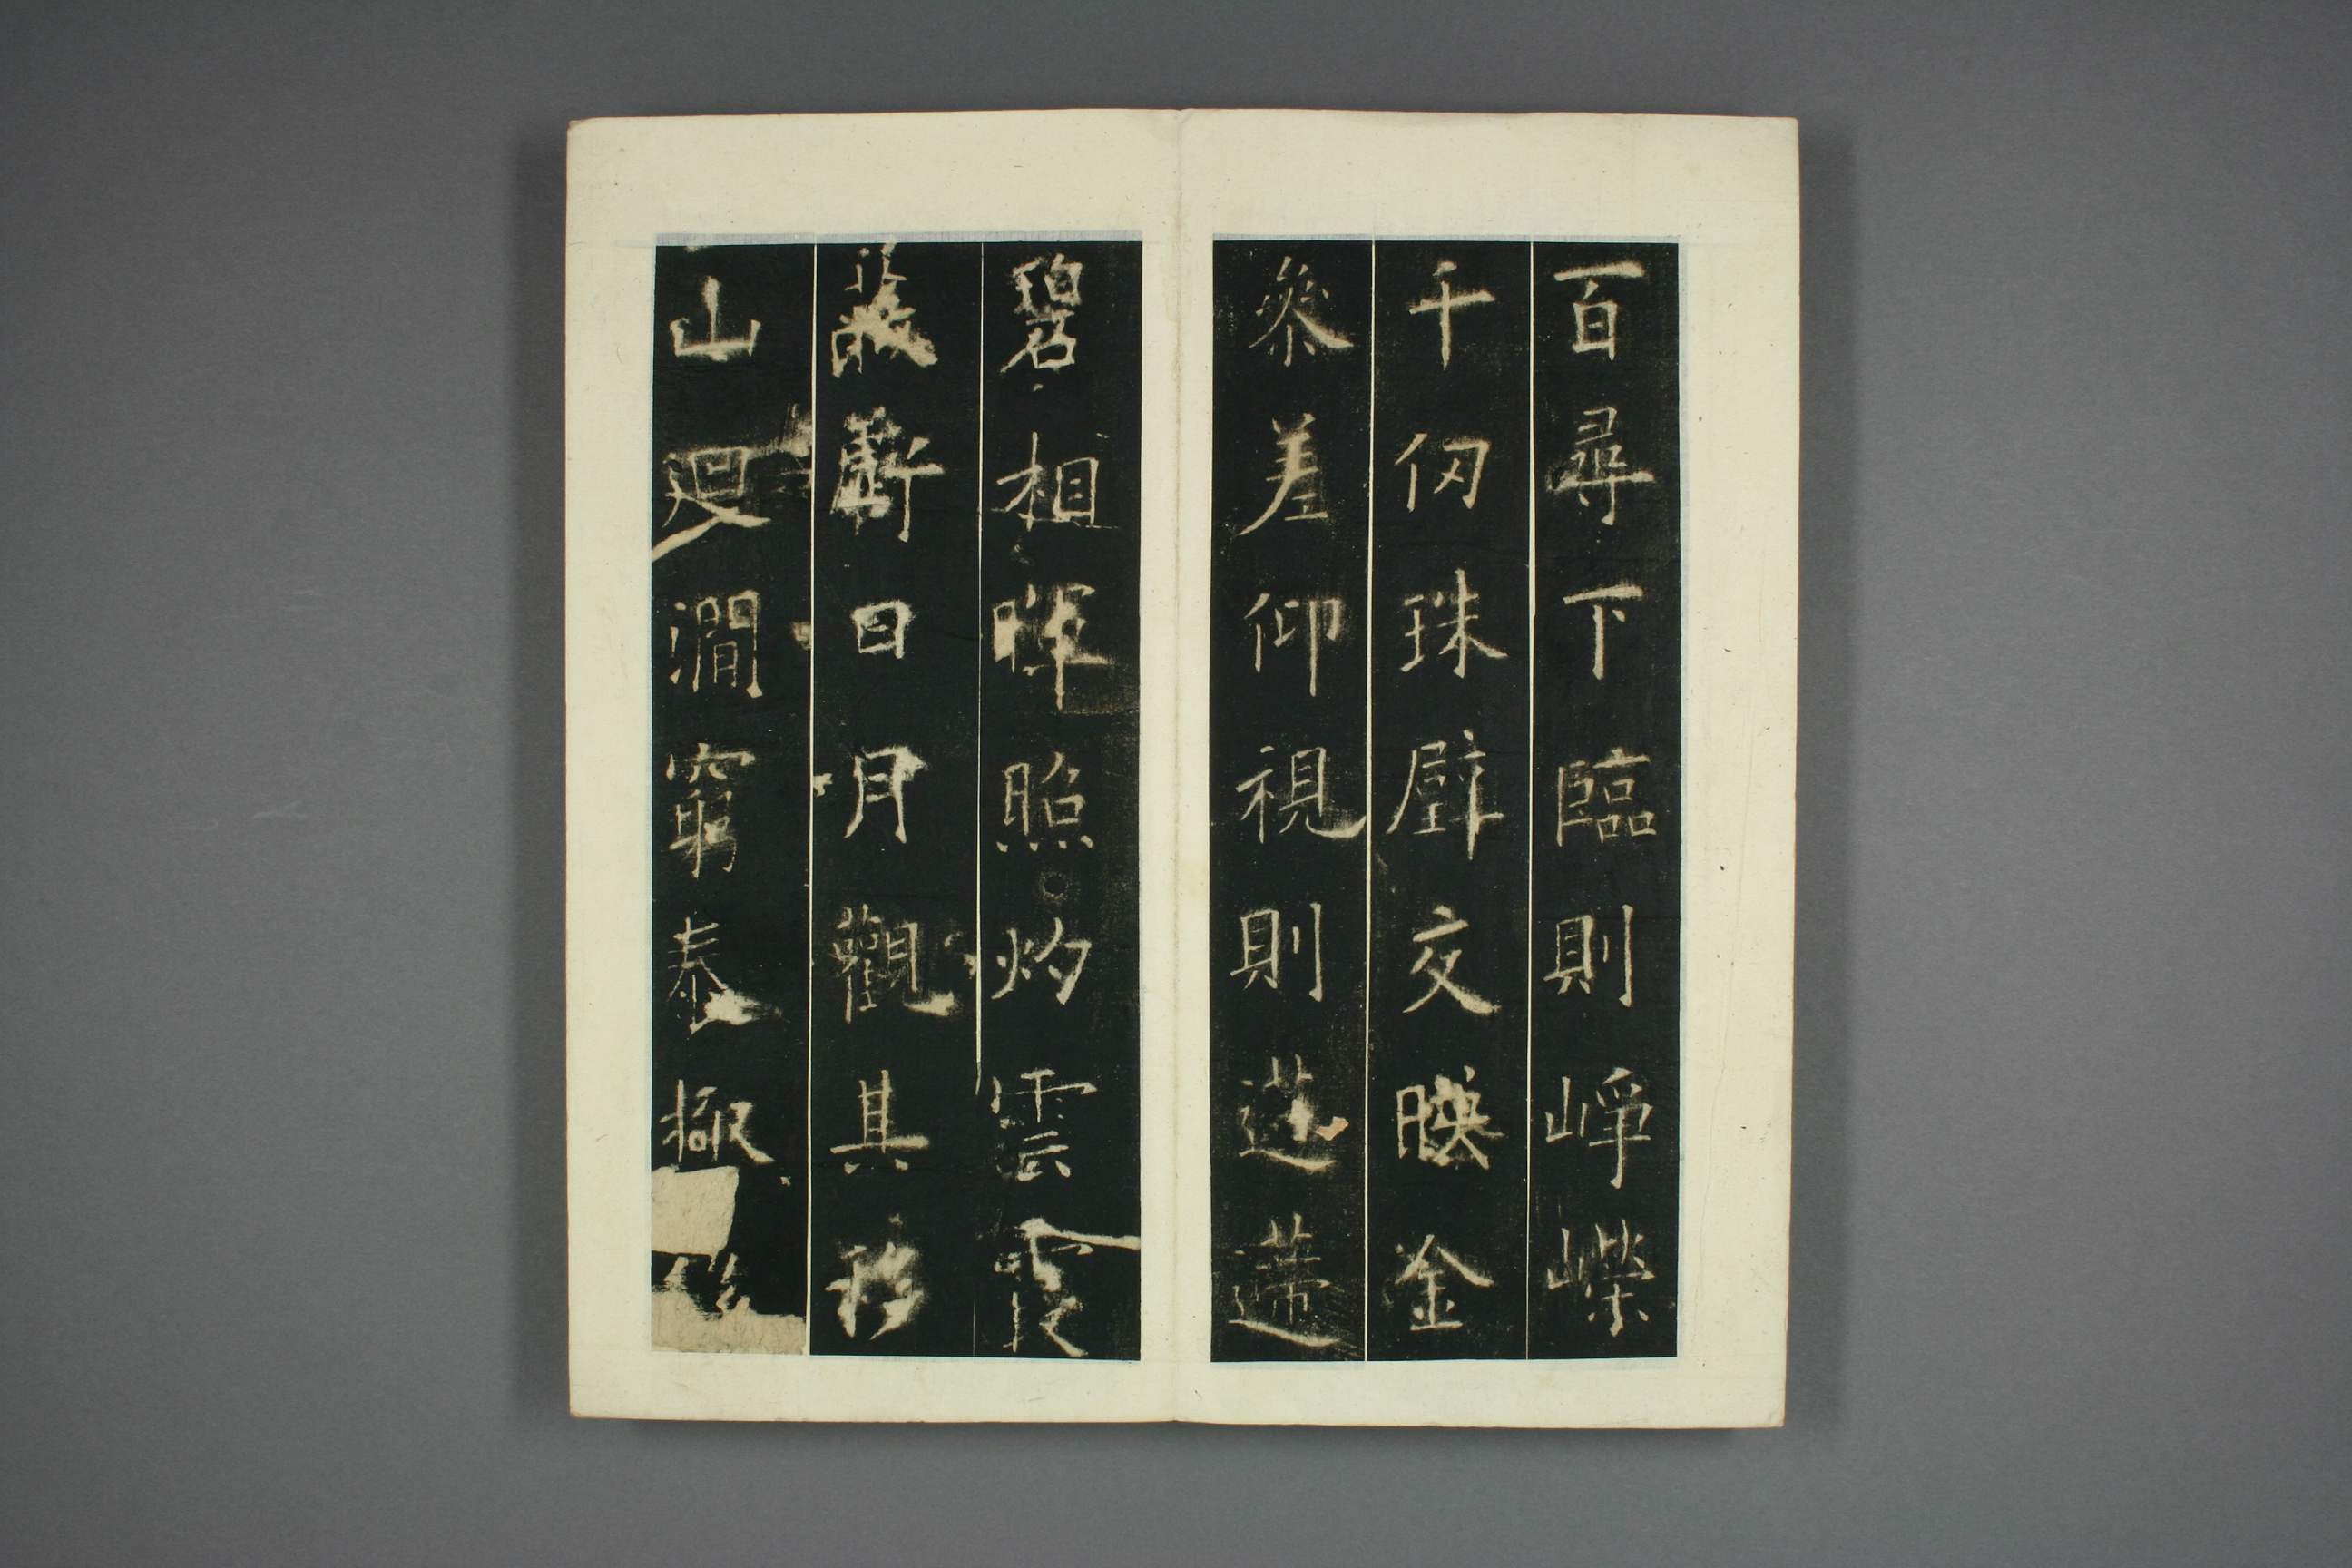 百尋下臨則崢嶸
千仞珠壁交映金
參差仰視則迢遰
碧相暉照灼雲霞
蔽虧日月觀其移
山迴澗窮泰極